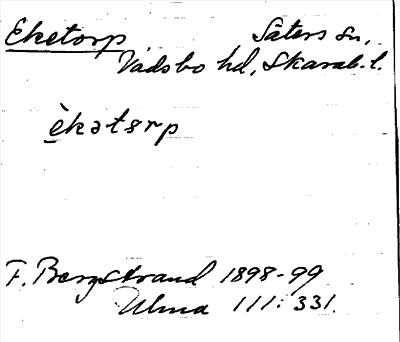 Eketorp Säters sn,
Vadsbo hd, Skarab. l.
èkətsrp
F. Bergstrand 1898-99
Ulma 111: 331.